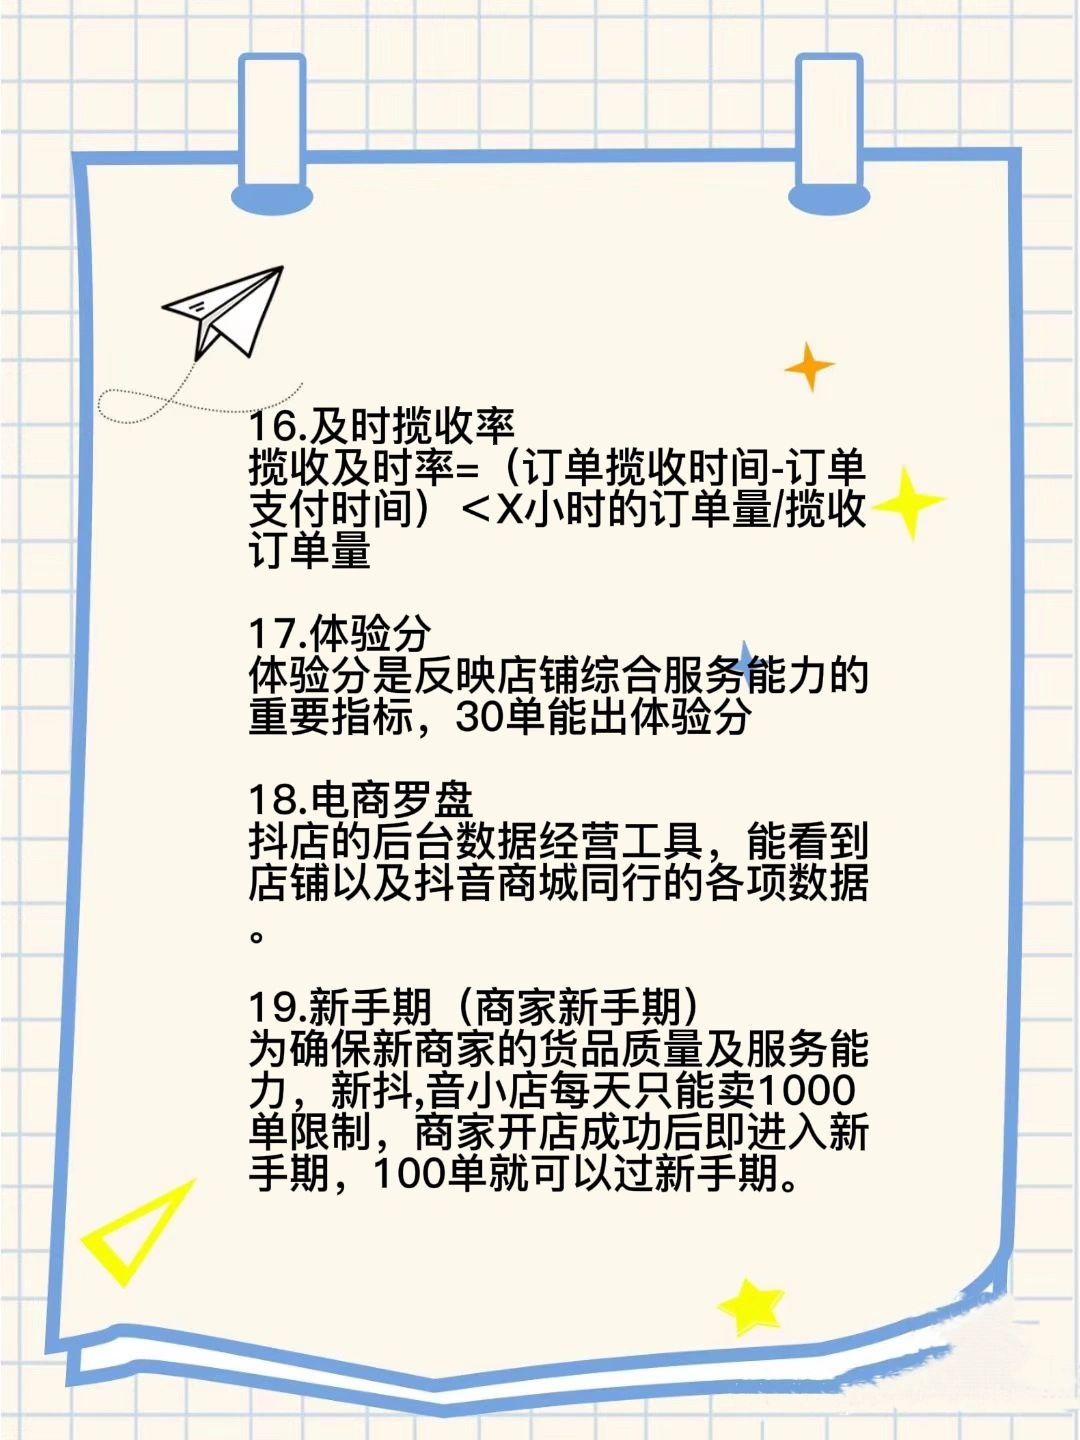 16.及时揽收率
揽收及时率=（订单揽收时间-订单
支付时间）＜X小时的订单量/揽收
订单量
17.体验分
体验分是反映店铺综合服务能力的
重要指标，30单能出体验分
18.电商罗盘
抖店的后台数据经营工具，能看到
店铺以及抖音商城同行的各项数据
。
19.新手期（商家新手期）
为确保新商家的货品质量及服务能
力，新抖,音小店每天只能卖1000
单限制，商家开店成功后即进入新
手期，100单就可以过新手期。